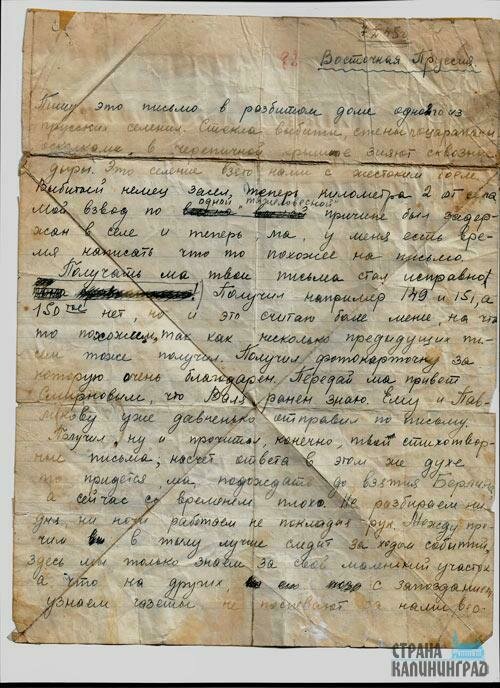 7.II.45г
92
Восточная Пруссия.
Пишу это письмо в разбитом доме одного из
прусских селений. Стекла выбиты, стены поцарапаны
осколками, в черепичной крыше зияют сквозные
дыры. Это селение взято нами с жестоким боем.
Выбитый немец залег, теперь километра 2 от села
одной "тяжеловесной"
Мой взвод по причине был задер-
жан в селе и теперь, ма, у меня есть вре-
мя написать что то похожее на письмо.
Получать ма твои письма стал исправно
Получил например 149 и 151, а
150 нет, но и это считаю боле мене, на что
то похожем, так как несколько предыдущих пи-
сем тоже получил. Получил фотокарточку за
которую очень благодарен. Передай ма привет
Смирновым, что Валя ранен знаю. Ему и Пав-
ликову уже давненько отправил по письму.
Получил, ну и прочитал, конечно, твои стихотвор-
ные письма; насчет ответа в этом же духе
то придется, ма, подождать до взятия Берлина
а сейчас со временем плохо. Не разбираем ни
дня, ни ночи работаем не покладая рук. Между про-
чим в тылу лучше следят за ходом событий,
здесь мы только знаем за свой маленький участок
а что на других, с запозданием
узнаем газеты не поспевают за нами
СТРАНА
КАЛИНИНГРАД